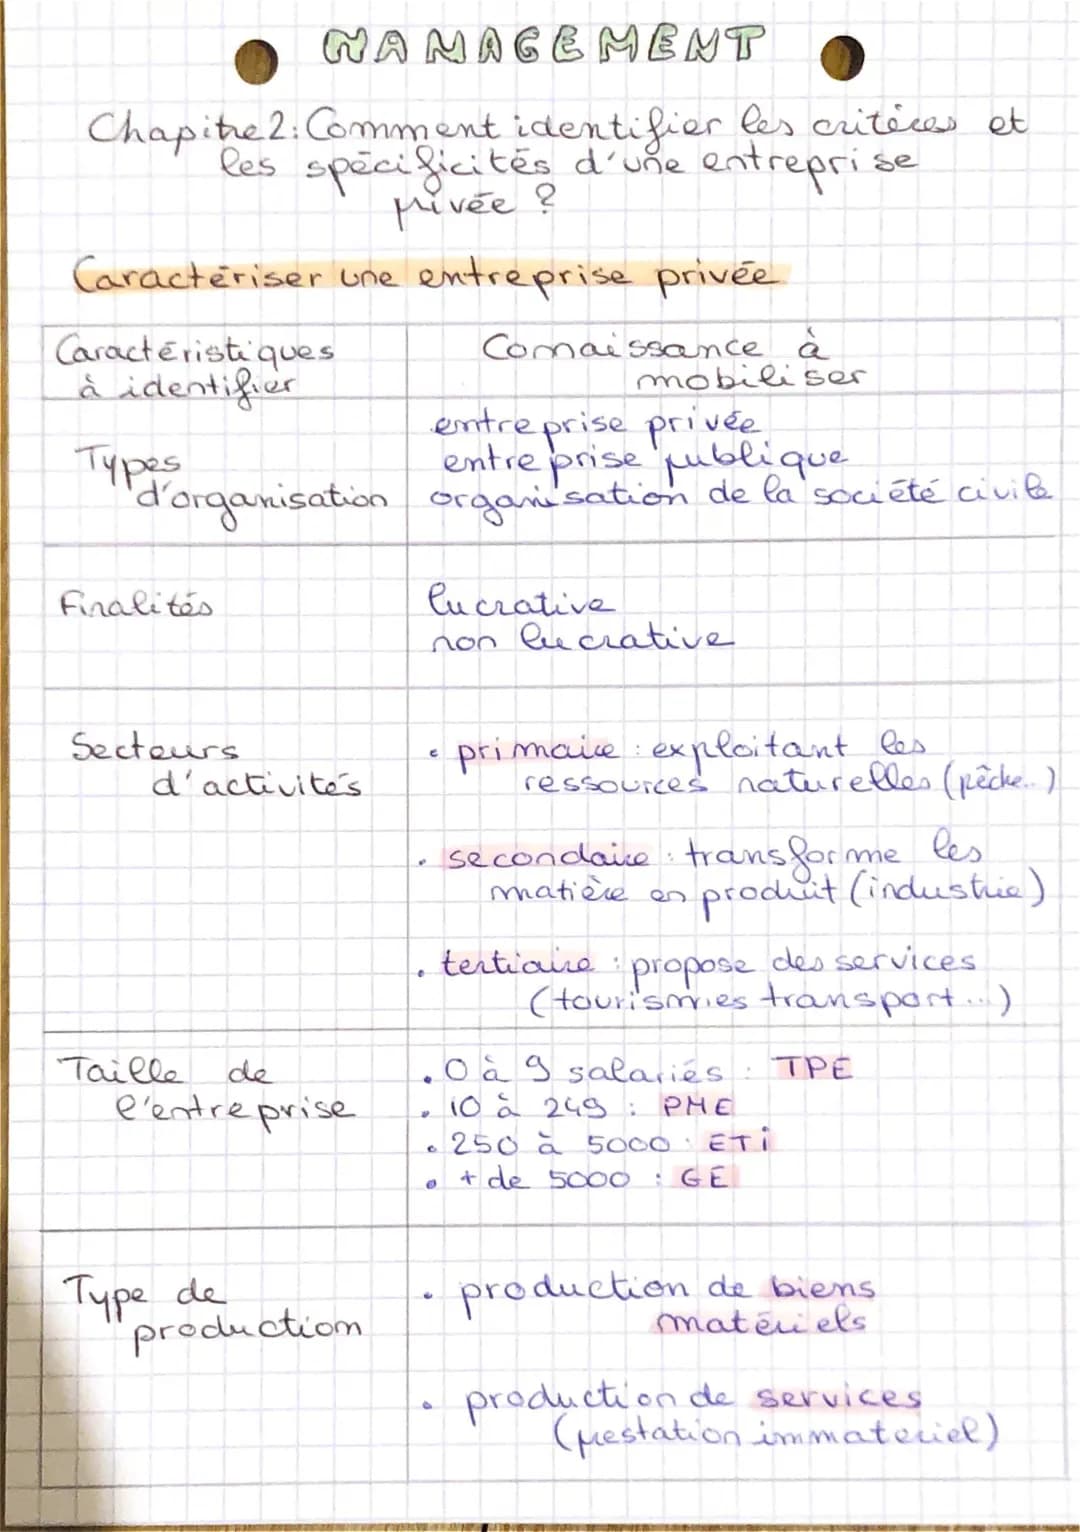 MANAGEMENT
Chapitre 2: Comment identifier les critères et
les spécificités d'une entreprise
privée ?
Caractériser une entreprise privée
Caractéristiques
à identifier
Connaissance à
mobiliser
Types
d'organisation
entreprise privée
entreprise publique
organisation de la société civile
Finalités
lucrative
non lucrative
Secteurs
d'activités
• primaire : exploitant les
ressources naturelles (pêche..)
• secondaire : transforme les
matière en produit (industrie)
• tertiaire : propose des services
(tourismes transport...)
Taille de
l'entreprise
• 0 à 9 salariés : TPE
• 10 à 249 : PME
• 250 à 5000 : ETi
• + de 5000 : GE
Type de
production
• production de biens
matériels
• production de services
(prestation immateriel)